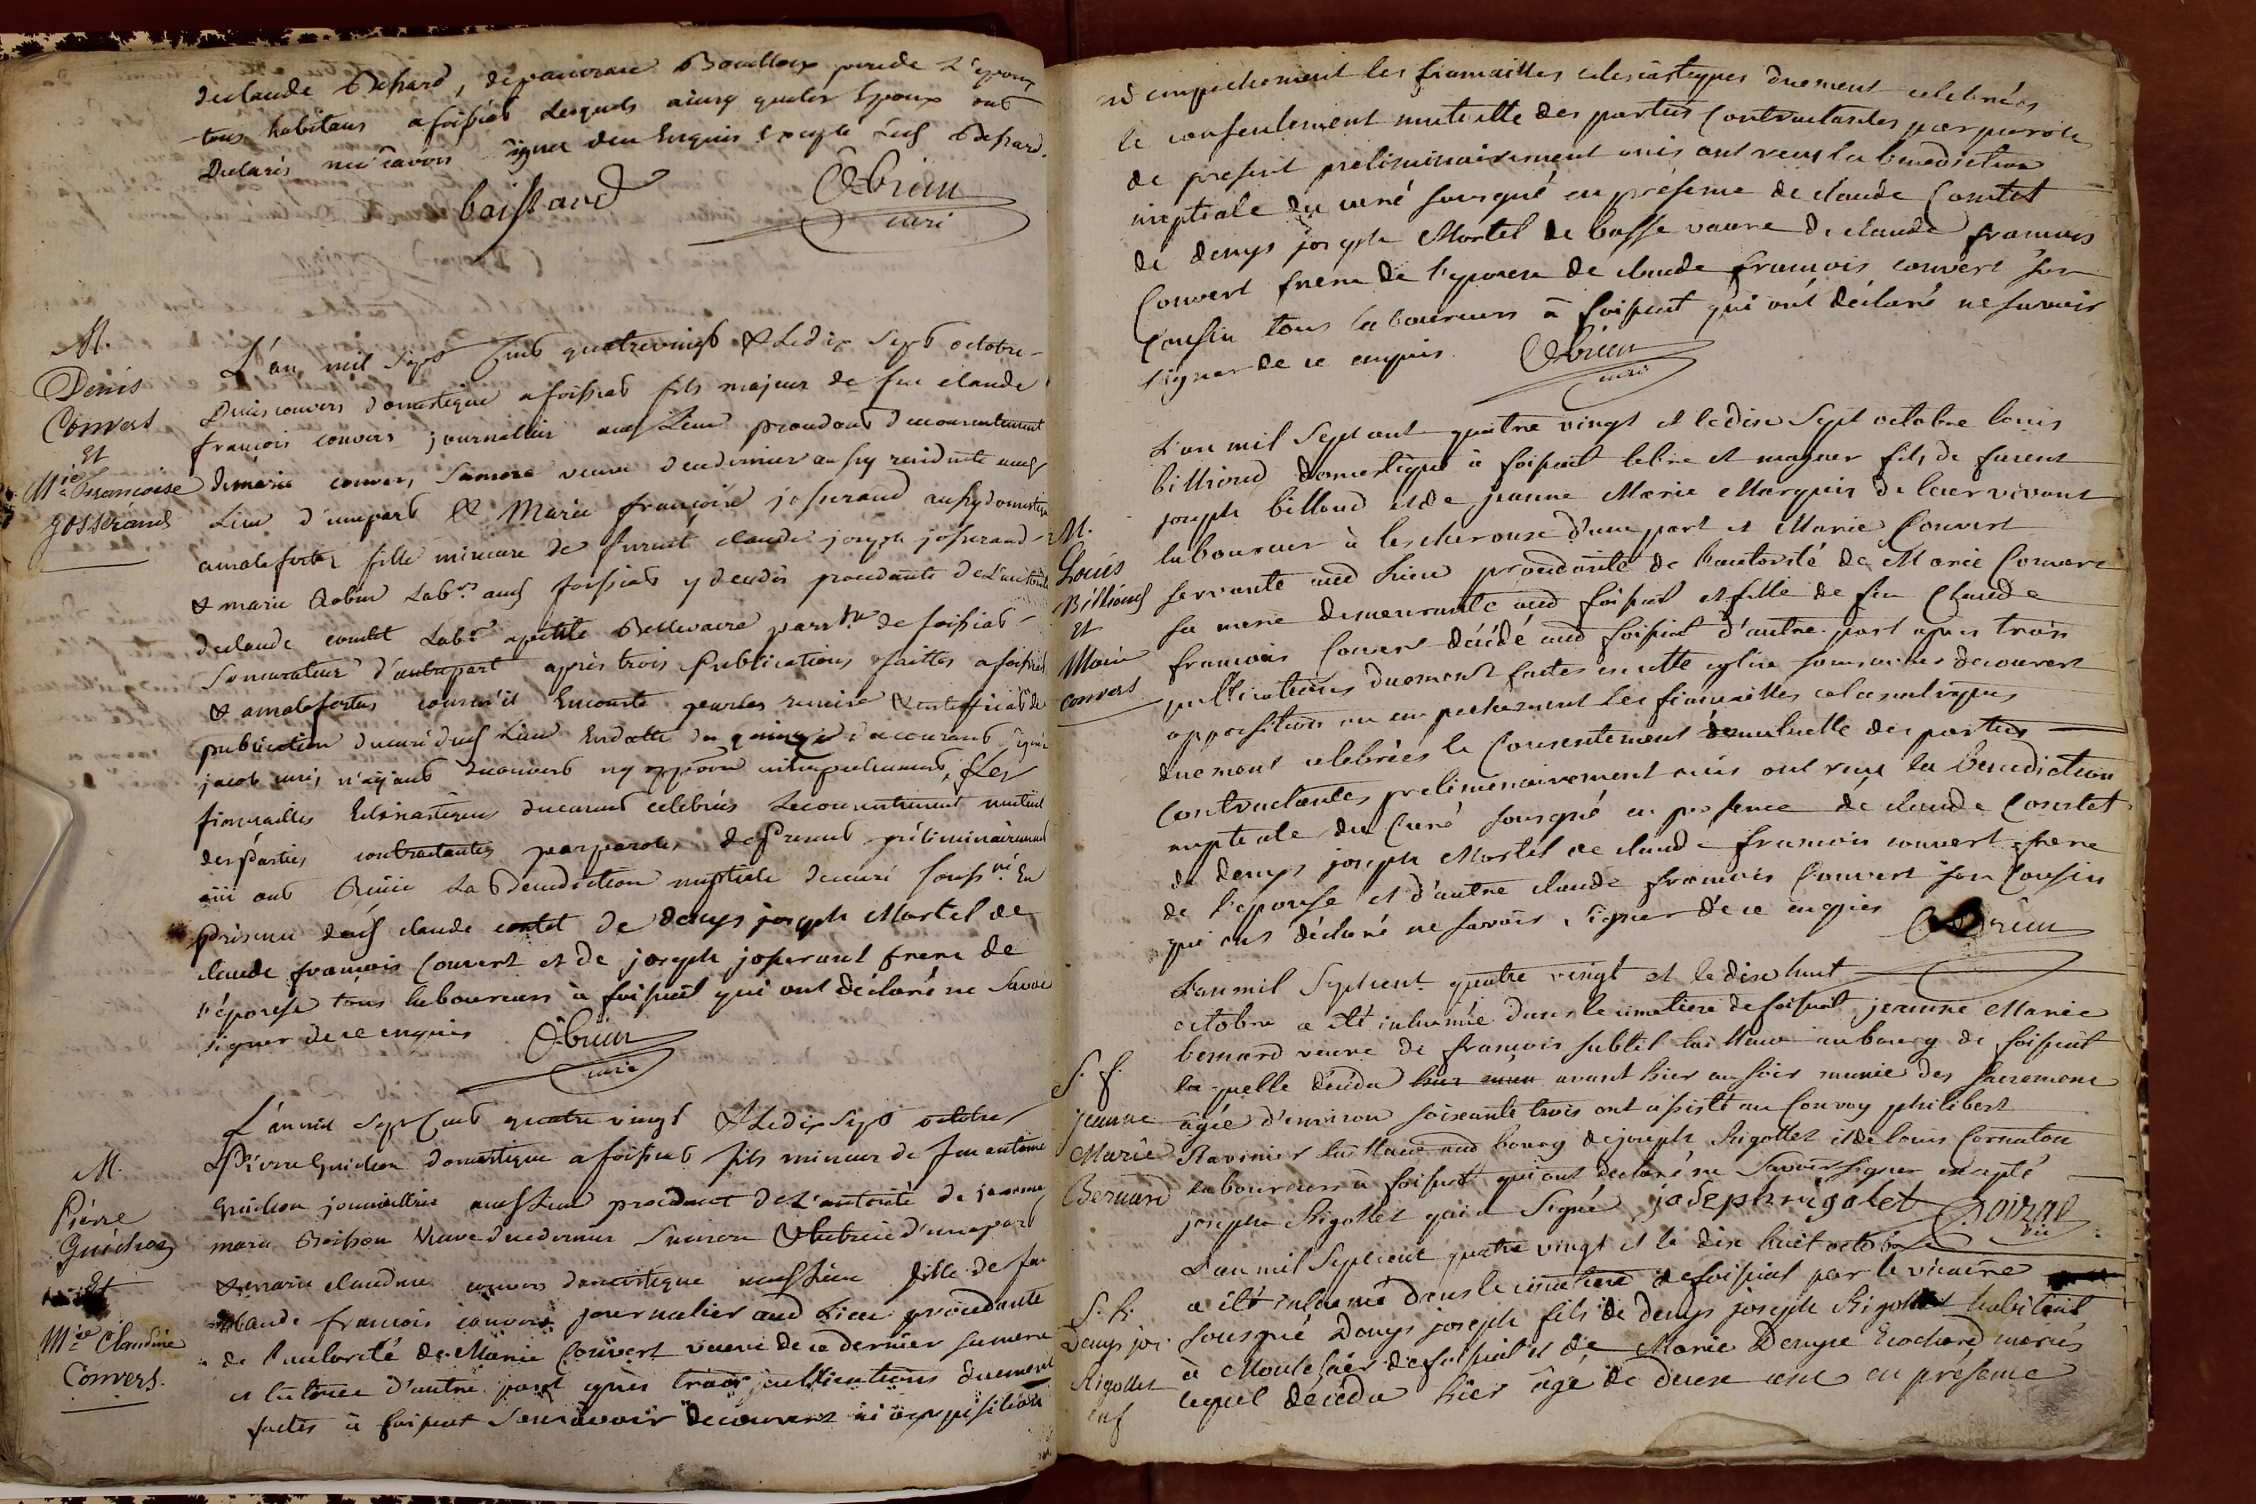 declaude Bessard, depancrace Bouilloux parude L'epoux
tous habitans a foissiat Lesquels ainsy queles Epoux ont
Declarés ne sçavoir signer deu Enquis Excepte Led Bessard.
boissard Obrien
curé
M.
Denis
Convers
Et
Mie Francoise
Josserand
L'an mil Sept Cent quatrevingt & Ledix Sept octobre
Denis convers domestique a foissiat fils majeur de feu claude
françois convers journallier aud Lieu procedant du consentement
demarie convers, Samere veuve dudernier aussy residante aud
Lieu d'unepart Et Marie françoise josserand aussy domestique
amalafretaz fille mineure de furent claude joseph josserand
& marie Robin Labrs aud foissiat y decedés procedante de L'autorité
declaude comtet Labr apetite Bellevavre parrsse de foissiat
Son curateur d'autrepart après trois publications faittes a foissiat
& amalafretaz comme il Enconste parlas remise & certifficat de
publication ducuré dud Lieu Endatte du quinze ducourant signé
jacob curé, n'ayant decouvert ny opposition ni empechement, Les
fiancailles Eclesiastiques duement celebrées Leconsentement mutuel
desparties contractantes parparoles depresent préliminairement
oui ont Reçue La Benediction nuptiale ducuré soussné En
presence dud claude comtet de denys joseph Mortel de
claude francois Convert et de joseph josserant frere de
l'épouse tous laboureurs à foissiat qui ont déclaré ne savoir
signer de ce enquis Obrien
curé
M.
Piérre
Guichon
Et
Mie Claudine
Convers.
L'an mil Sept Cent quatre vingt & Ledix Sept octobre
Pierre Guichon domestique a foissiat fils mineur de feu antoine
Guichon journallier aud Lieu procedant de L'autorité de jeanne
marie Boisson Veuve dudernier Samere & tutrice d'unepart
& marie claudine convers domestique aud Lieu fille de feu
claude francois convers journalier aud Lieu procédante
de l'autorité de Marie Convert veuve de ce dernier sa mere
et tutrice d'autre part après trois publications duement
faites à foissiat sans avoir decouvert ni opposition
ni empechement les fiancailles eclesiastiques duement celebrées
le consentement mutuelle des parties Contractantes par parole
de present preliminairement ouis ont reçu la benediction
nuptiale du curé sousigné en présence de claude Comtet
de denys joseph Mortel de basse vavre de claude francois
Convert frere de l'epouse de claude francois convert son
Cousin tous laboureurs à foissiat qui ont déclaré ne savoir
signer de ce enquis Obrien
curé
M.
Louis
Billioud
Et
Marie
convers
L'an mil Sept cent quatre vingt et le dix Sept octobre louis
billioud domestique à foissiat libre et majeur fils de furent
joseph billioud et de jeanne Marie Marguin de leur vivant
laboureur à lescheroux d'une part et Marie Convert
servante aud Lieu procedante de l'autorité de Marie Convert
sa mere demeurante aud foissiat et fille de feu Claude
francois Convert décédé aud foissiat d'autre part apres trois
publications duement faites en cette eglise sans avoir decouvert
opposition ou empechement les fiancailles eclesiastiques
duement celebrées le Consentement mutuelle des parties
Contractantes preliminairement ouis ont reçu la benediction
nuptiale du Curé sousigné en presence de claude Comtet
de denys joseph Mortel de claude francois convert frere
de l'epouse et d'autre claude francois Convert son Cousin
qui ont déclaré ne savoir signer de ce enquis Obrien
S. f.
jeanne
Marie
Bernard
L'an mil Septcent quatre vingt et le dix huit
octobre a été inhumée dans le cimetiere de foissiat jeanne Marie
bernard veuve de francois subtil tailleur au bourg de foissiat
laquelle décéda avant hier au soir munie des sacremens
âgée d'environ soixante trois ont assisté au Convoy philibert
Ravinier tailleur aud bourg de joseph Rigollet et de louis Cornaton
laboureurs à foissiat qui ont declaré ne savoir signer excepté
joseph Rigollet qui a Signé josephrigolet Doirat
vic
S. h.
denys jos.
Rigollet
enf
L'an mil Septcent quatre vingt et le dix huit octobre
a été inhumé dans le cimetiere de foissiat par le vicaire
sousigné Denys joseph fils de denys joseph Rigollet habitant
à Montesser de foissiat et de Marie Denyse Brochard mariés
lequel décéda hier âgé de deux ans en presence